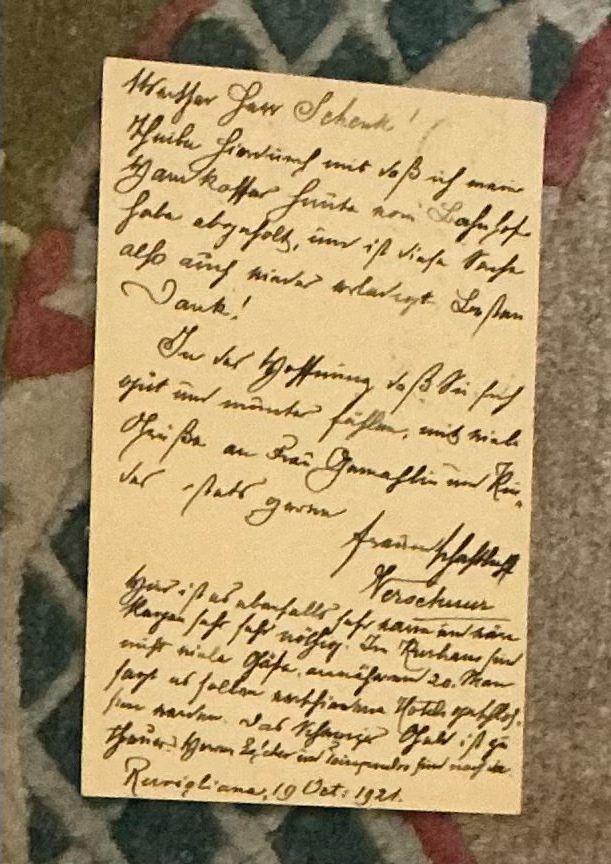 Werther Herr Schenk!
Theile hierdurch mit daß ich mein
Handkoffer heute vom Bahnhofe
habe abgeholt, und ist diese Sache
also auch wieder erledigt. Besten
Dank!
In der Hoffnung daß Sie sich
gut und munter fühlen, mit viele
Grüße an Frau Gemahlin und Kin-
der, stets gerne
freundschaftlich
Verschuur
Hier ist es ebenfalls sehr warm und wäre
Regen sehr sehr nöthig. Im Kurhaus sind
nicht viele Gäste, annähernd 20. Man
sagt es sollen verschiedene Hotels geschlos-
sen werden. Das Schweizer Geld ist zu
theuer. Herr und sind noch da.
Ruvigliana, 19 Oct: 1921.